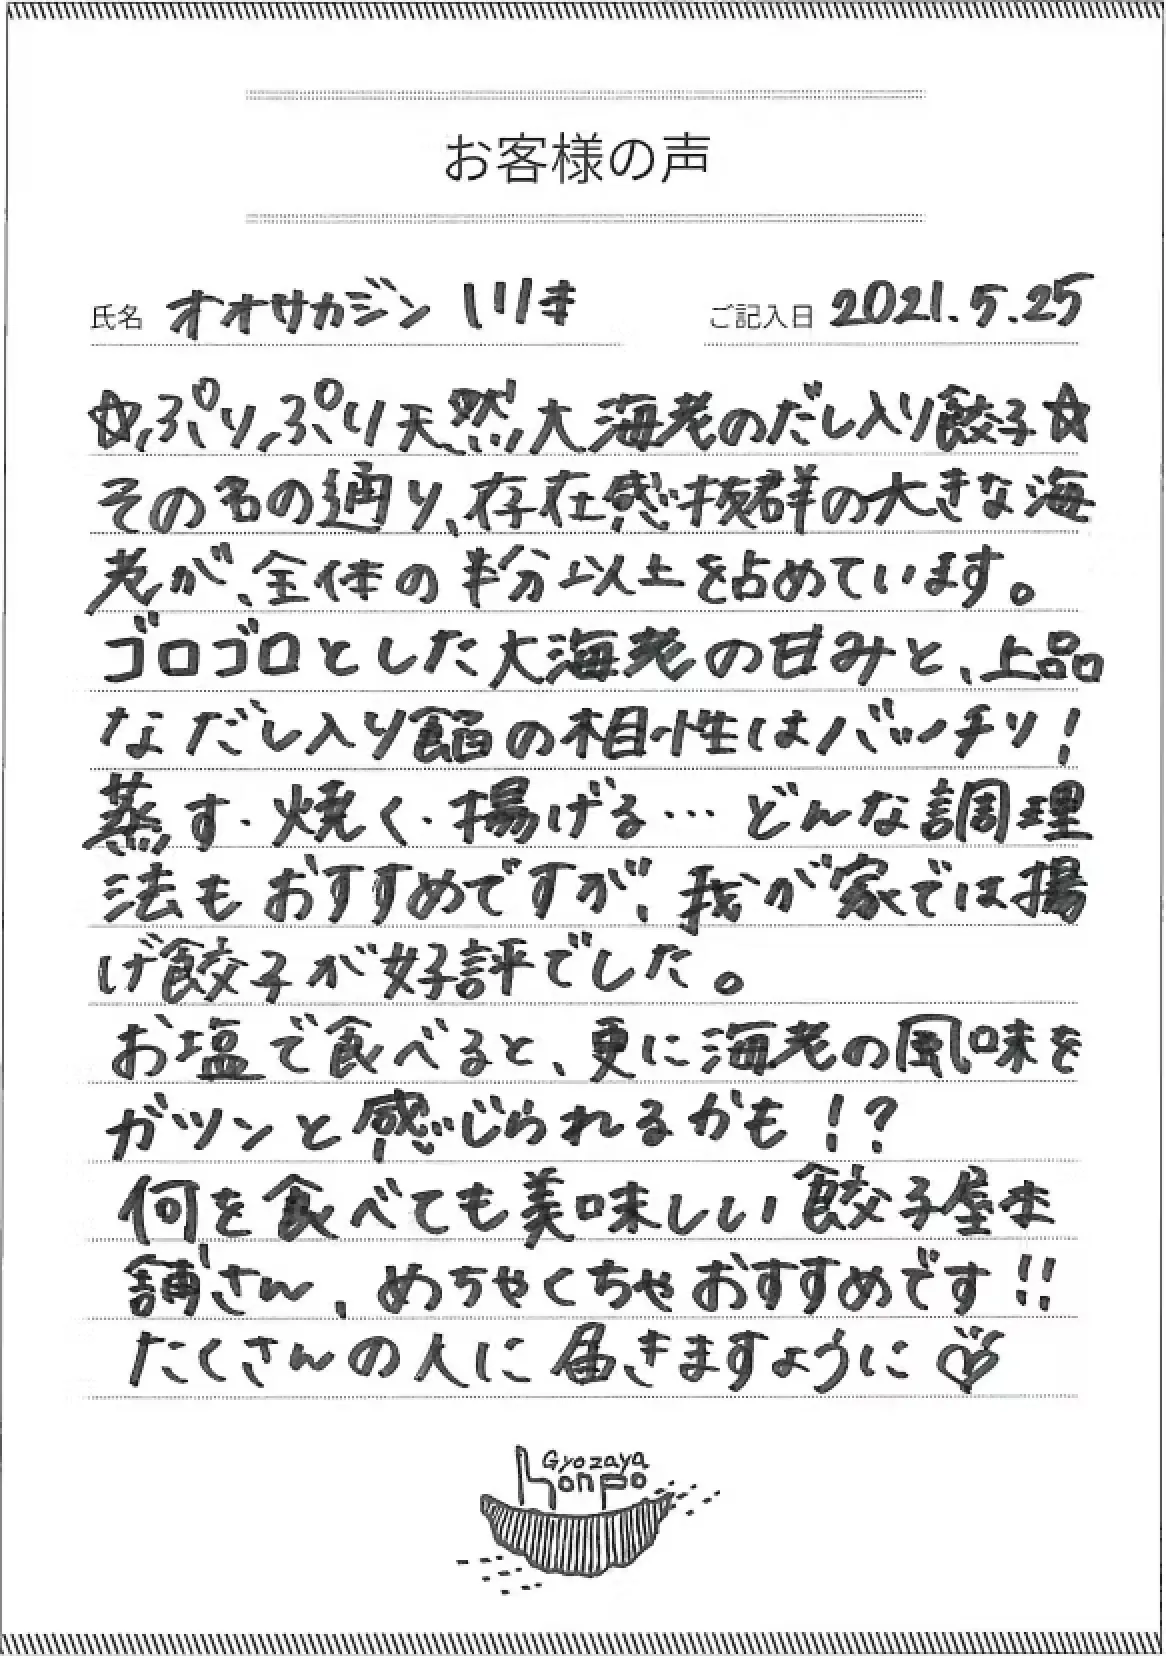 お客様の声
氏名 オオサカジン いりき ご記入日 2021.5.25
☆ぷりぷり天然大海老のだし入り餃子☆
その名の通り、存在感抜群の大きな海
老が、全体の半分以上を占めています。
ゴロゴロとした大海老の甘みと、上品
なだし入り餡の相性はバッチリ!
蒸す・焼く・揚げる…どんな調理
法もおすすめですが、我が家では揚
げ餃子が好評でした。
お塩で食べると、更に海老の風味を
ガツンと感じられるかも!?
何を食べても美味しい餃子屋本
舗さん、めちゃくちゃおすすめです!!
たくさんの人に届きますように♡
Gyozaya
honpo